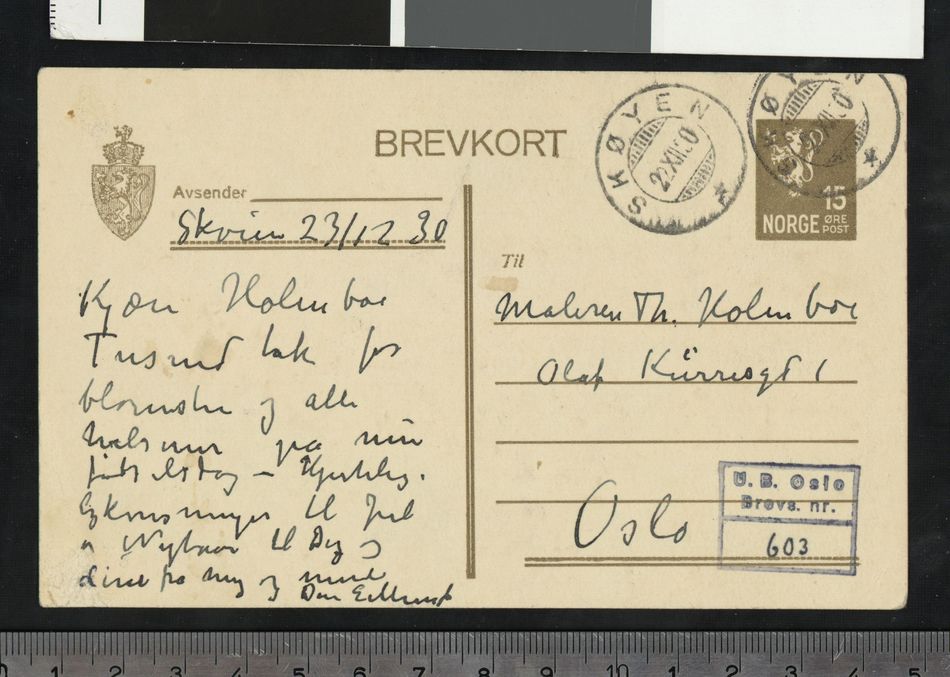 BREVKORT
Avsender
Skøien 23/12 30
Kjære Holmboe
Tusind tak for
blomster og alle
hilsener på min
fødselsdag –
til Jul
og Nytaar til Dig og
dine fra mig og mine
Din
SKØYEN
SKØYEN
NORGE 15 ØRE POST
Til
Maleren Th. Holmboe
Olaf Kürresgt 1
Oslo
U. B. Oslo
Brevs. nr.
603
0 1 2 3 4 5 6 7 8 9 10 1 2 3 4 5